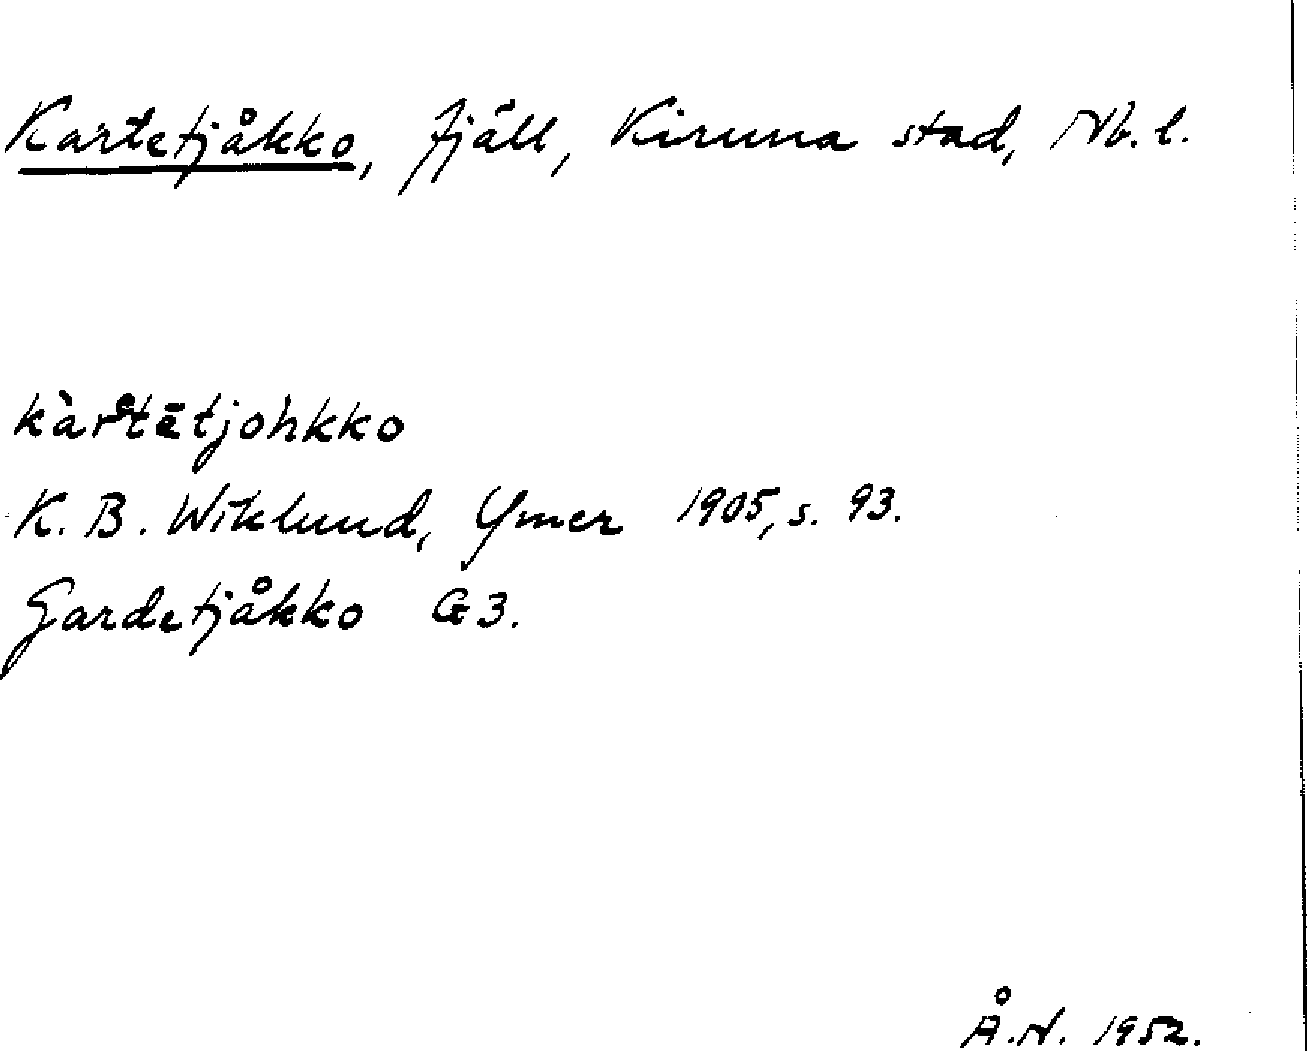 Kartetjåkko, fjäll, Kiruna stad, Nb. l.
kàrᵉtētjohkko
K. B. Wiklund, Ymer 1905, s. 93.
Gardetjåkko G3.
Å.N. 1952.